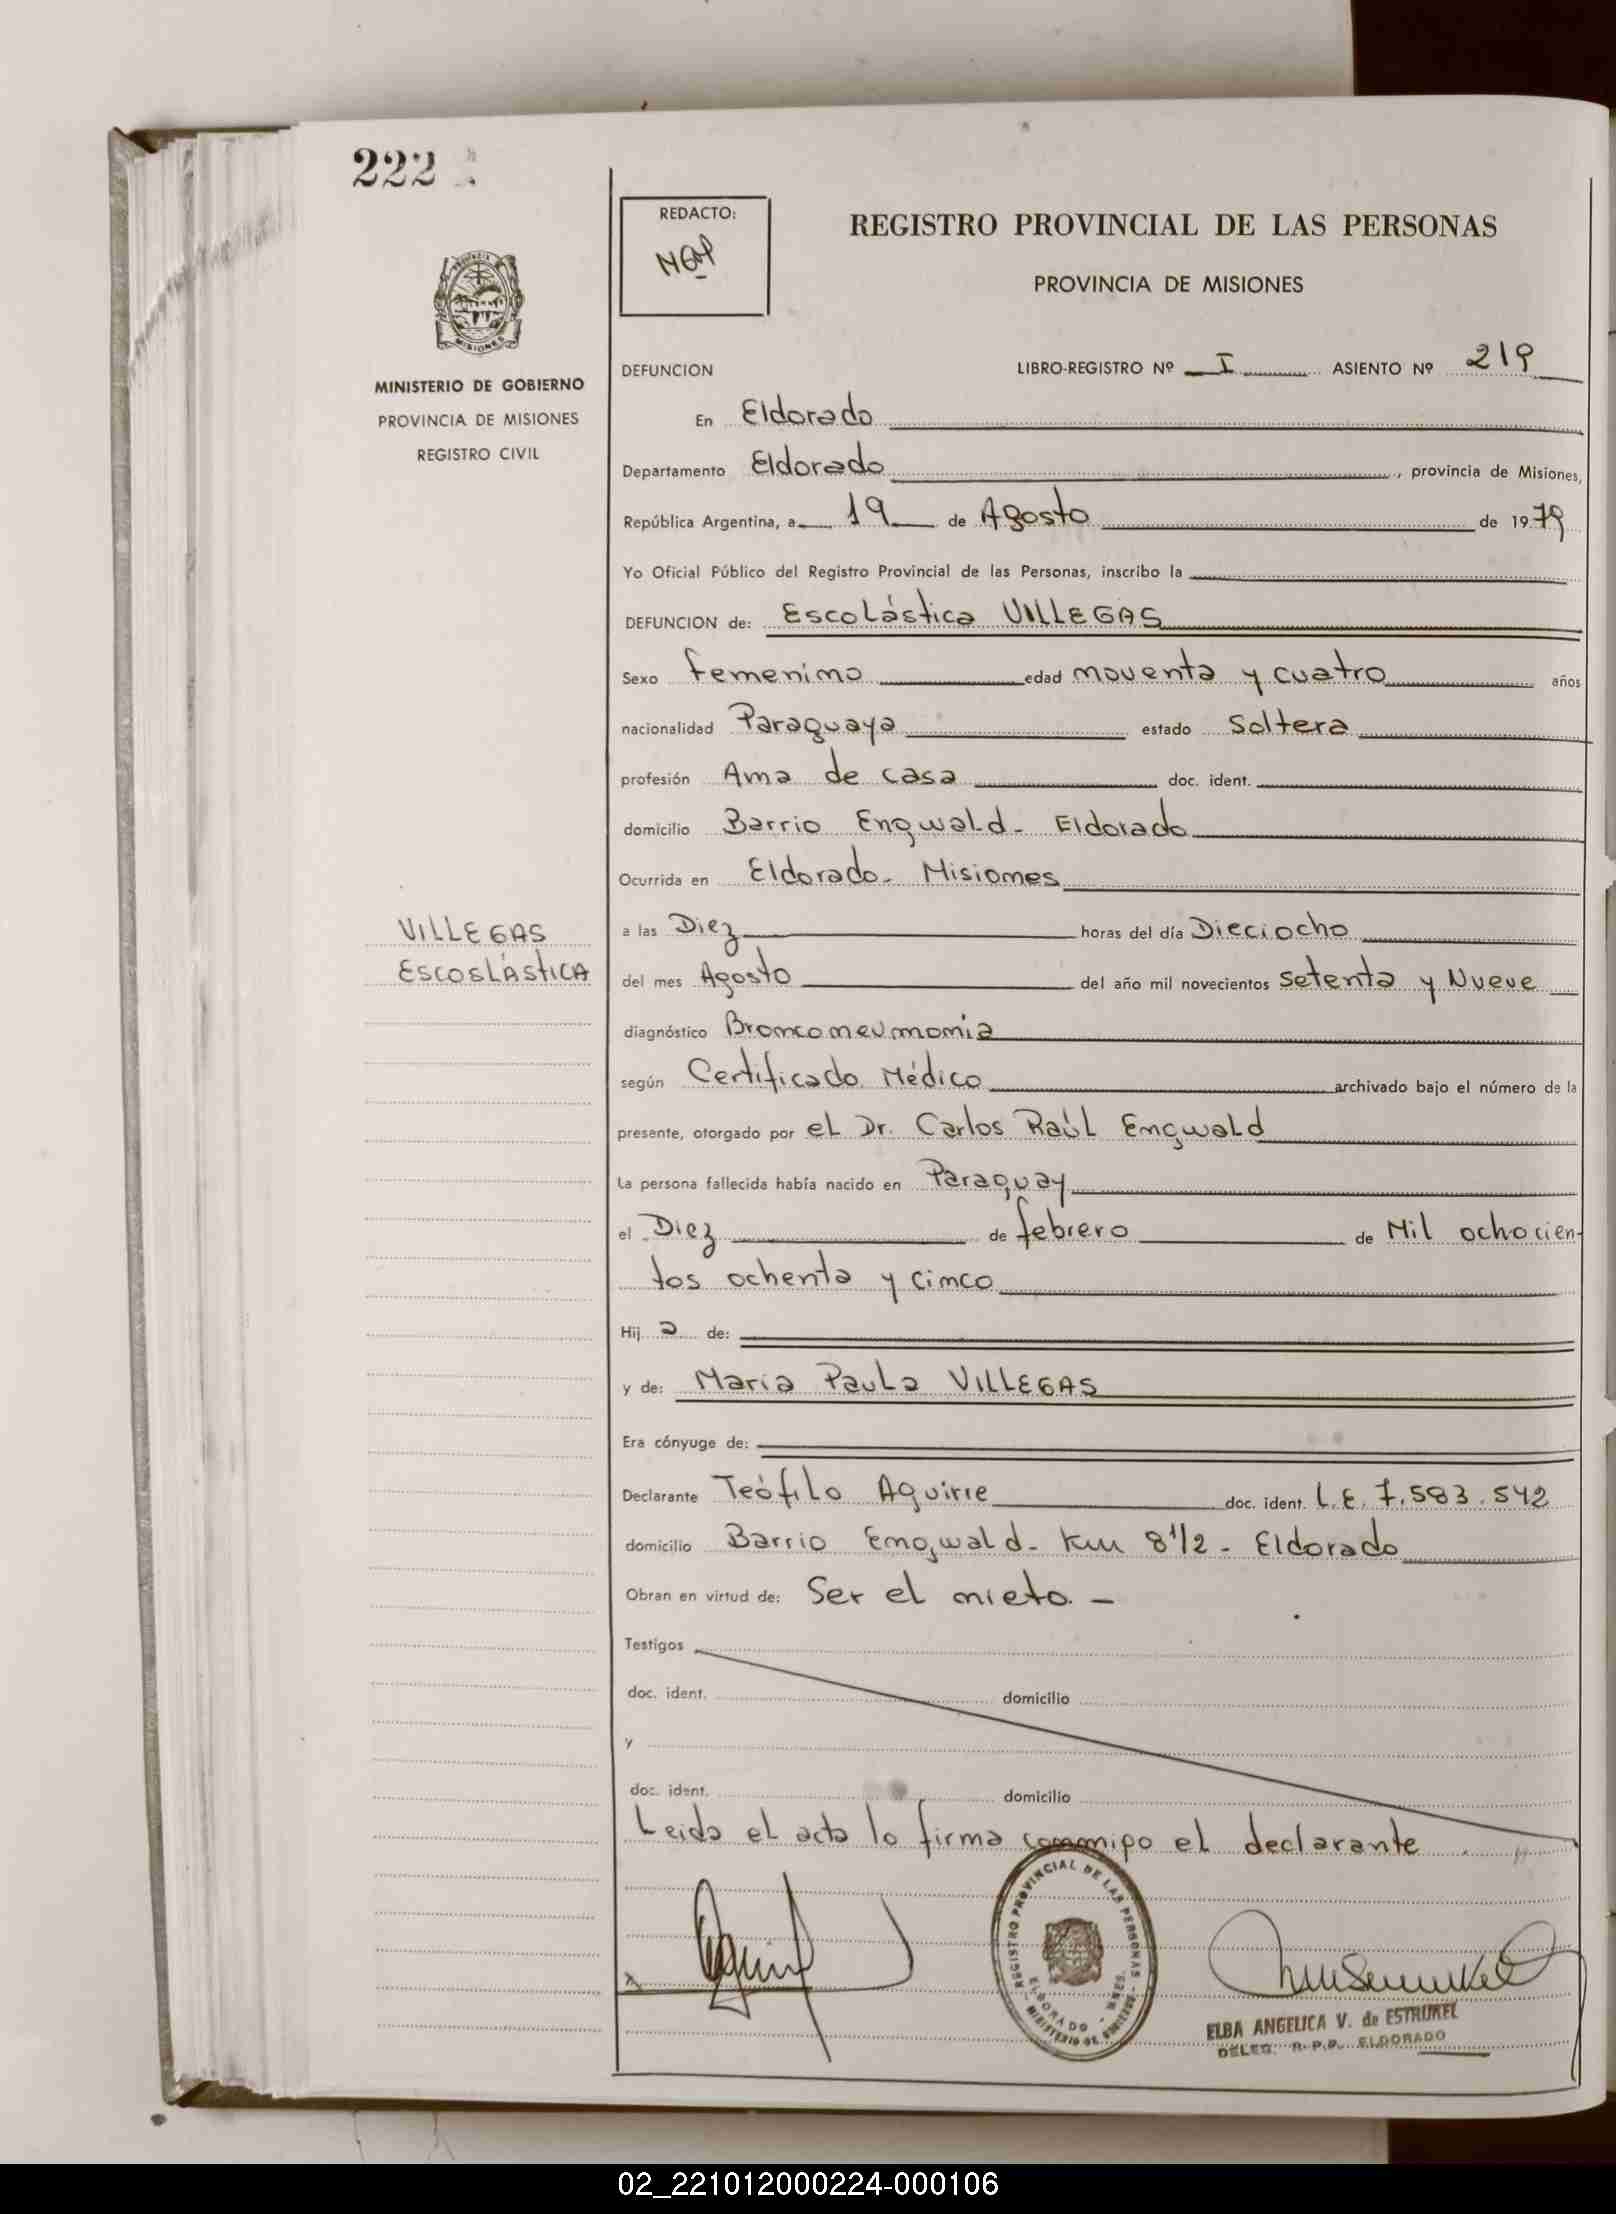 222
REDACTO:
REGISTRO PROVINCIAL DE LAS PERSONAS
PROVINCIA DE MISIONES
MISIONES
MINISTERIO DE GOBIERNO
PROVINCIA DE MISIONES
REGISTRO CIVIL
DEFUNCION LIBRO-REGISTRO Nº I ASIENTO Nº 219
En Eldorado
Departamento Eldorado, provincia de Misiones,
República Argentina, a 19 de Agosto de 1979
Yo Oficial Público del Registro Provincial de las Personas, inscribo la
DEFUNCION de: Escolástica VILLEGAS
Sexo femenino edad noventa y cuatro años
nacionalidad Paraguaya estado Soltera
profesión Ama de casa doc. ident.
domicilio Barrio Engwald - Eldorado
Ocurrida en Eldorado - Misiones
VILLEGAS
ESCOSLÁSTICA
a las Diez horas del día Dieciocho
del mes Agosto del año mil novecientos setenta y Nueve
diagnóstico Bronconeumonia
según Certificado Médico archivado bajo el número de la
presente, otorgado por el Dr. Carlos Raúl Engwald
La persona fallecida había nacido en Paraguay
el Diez de febrero de Mil ochocien-
tos ochenta y cinco
Hij a de:
y de: Maria Paula VILLEGAS
Era cónyuge de:
Declarante Teófilo Aguirre doc. ident. L.E. 7.583.542
domicilio Barrio Engwald - Km 8 1/2 - Eldorado
Obran en virtud de: Ser el nieto. -
Testigos
doc. ident. domicilio
y
doc. ident. domicilio
Leida el acta lo firma conmigo el declarante
REGISTRO PROVINCIAL DE LAS PERSONAS
ELDORADO - MNES.
MINISTERIO DE GOBIERNO
ELBA ANGELICA V. de ESTRUKEL
DELEG. R.P.P. ELDORADO
02_221012000224-000106